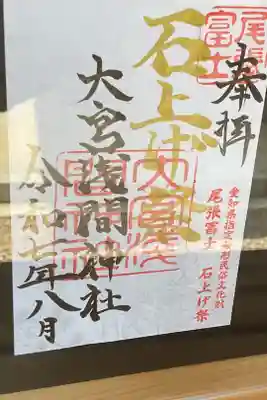 奉拝
愛知県指定無形民俗文化財
尾張冨士 石上げ祭
石上げ祭
大宮浅間神社
令和七年八月